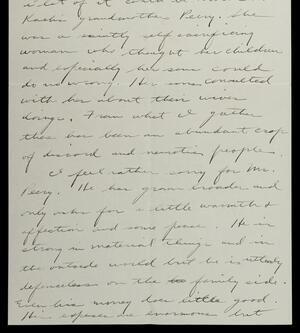 a lot of it could be
Kashi grandmother Perry. She
was a saintly self sacrificing
woman who thought her children
and especially her sons could
do no wrong. Her sons consulted
with her about their wives
doings. From what I gather
there has been an abundant crop
of discord and neurotic people.
I feel rather sorry for Mr.
Perry. He has grown broader and
only asks for a little warmth &
affection and some peace. He is
strong in material things and in
the outside world but he is utterly
defenseless on the family side.
Even his money does little good.
His expenses are enormous but